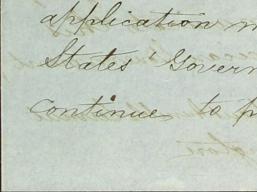 application m
States Govern
continue to p